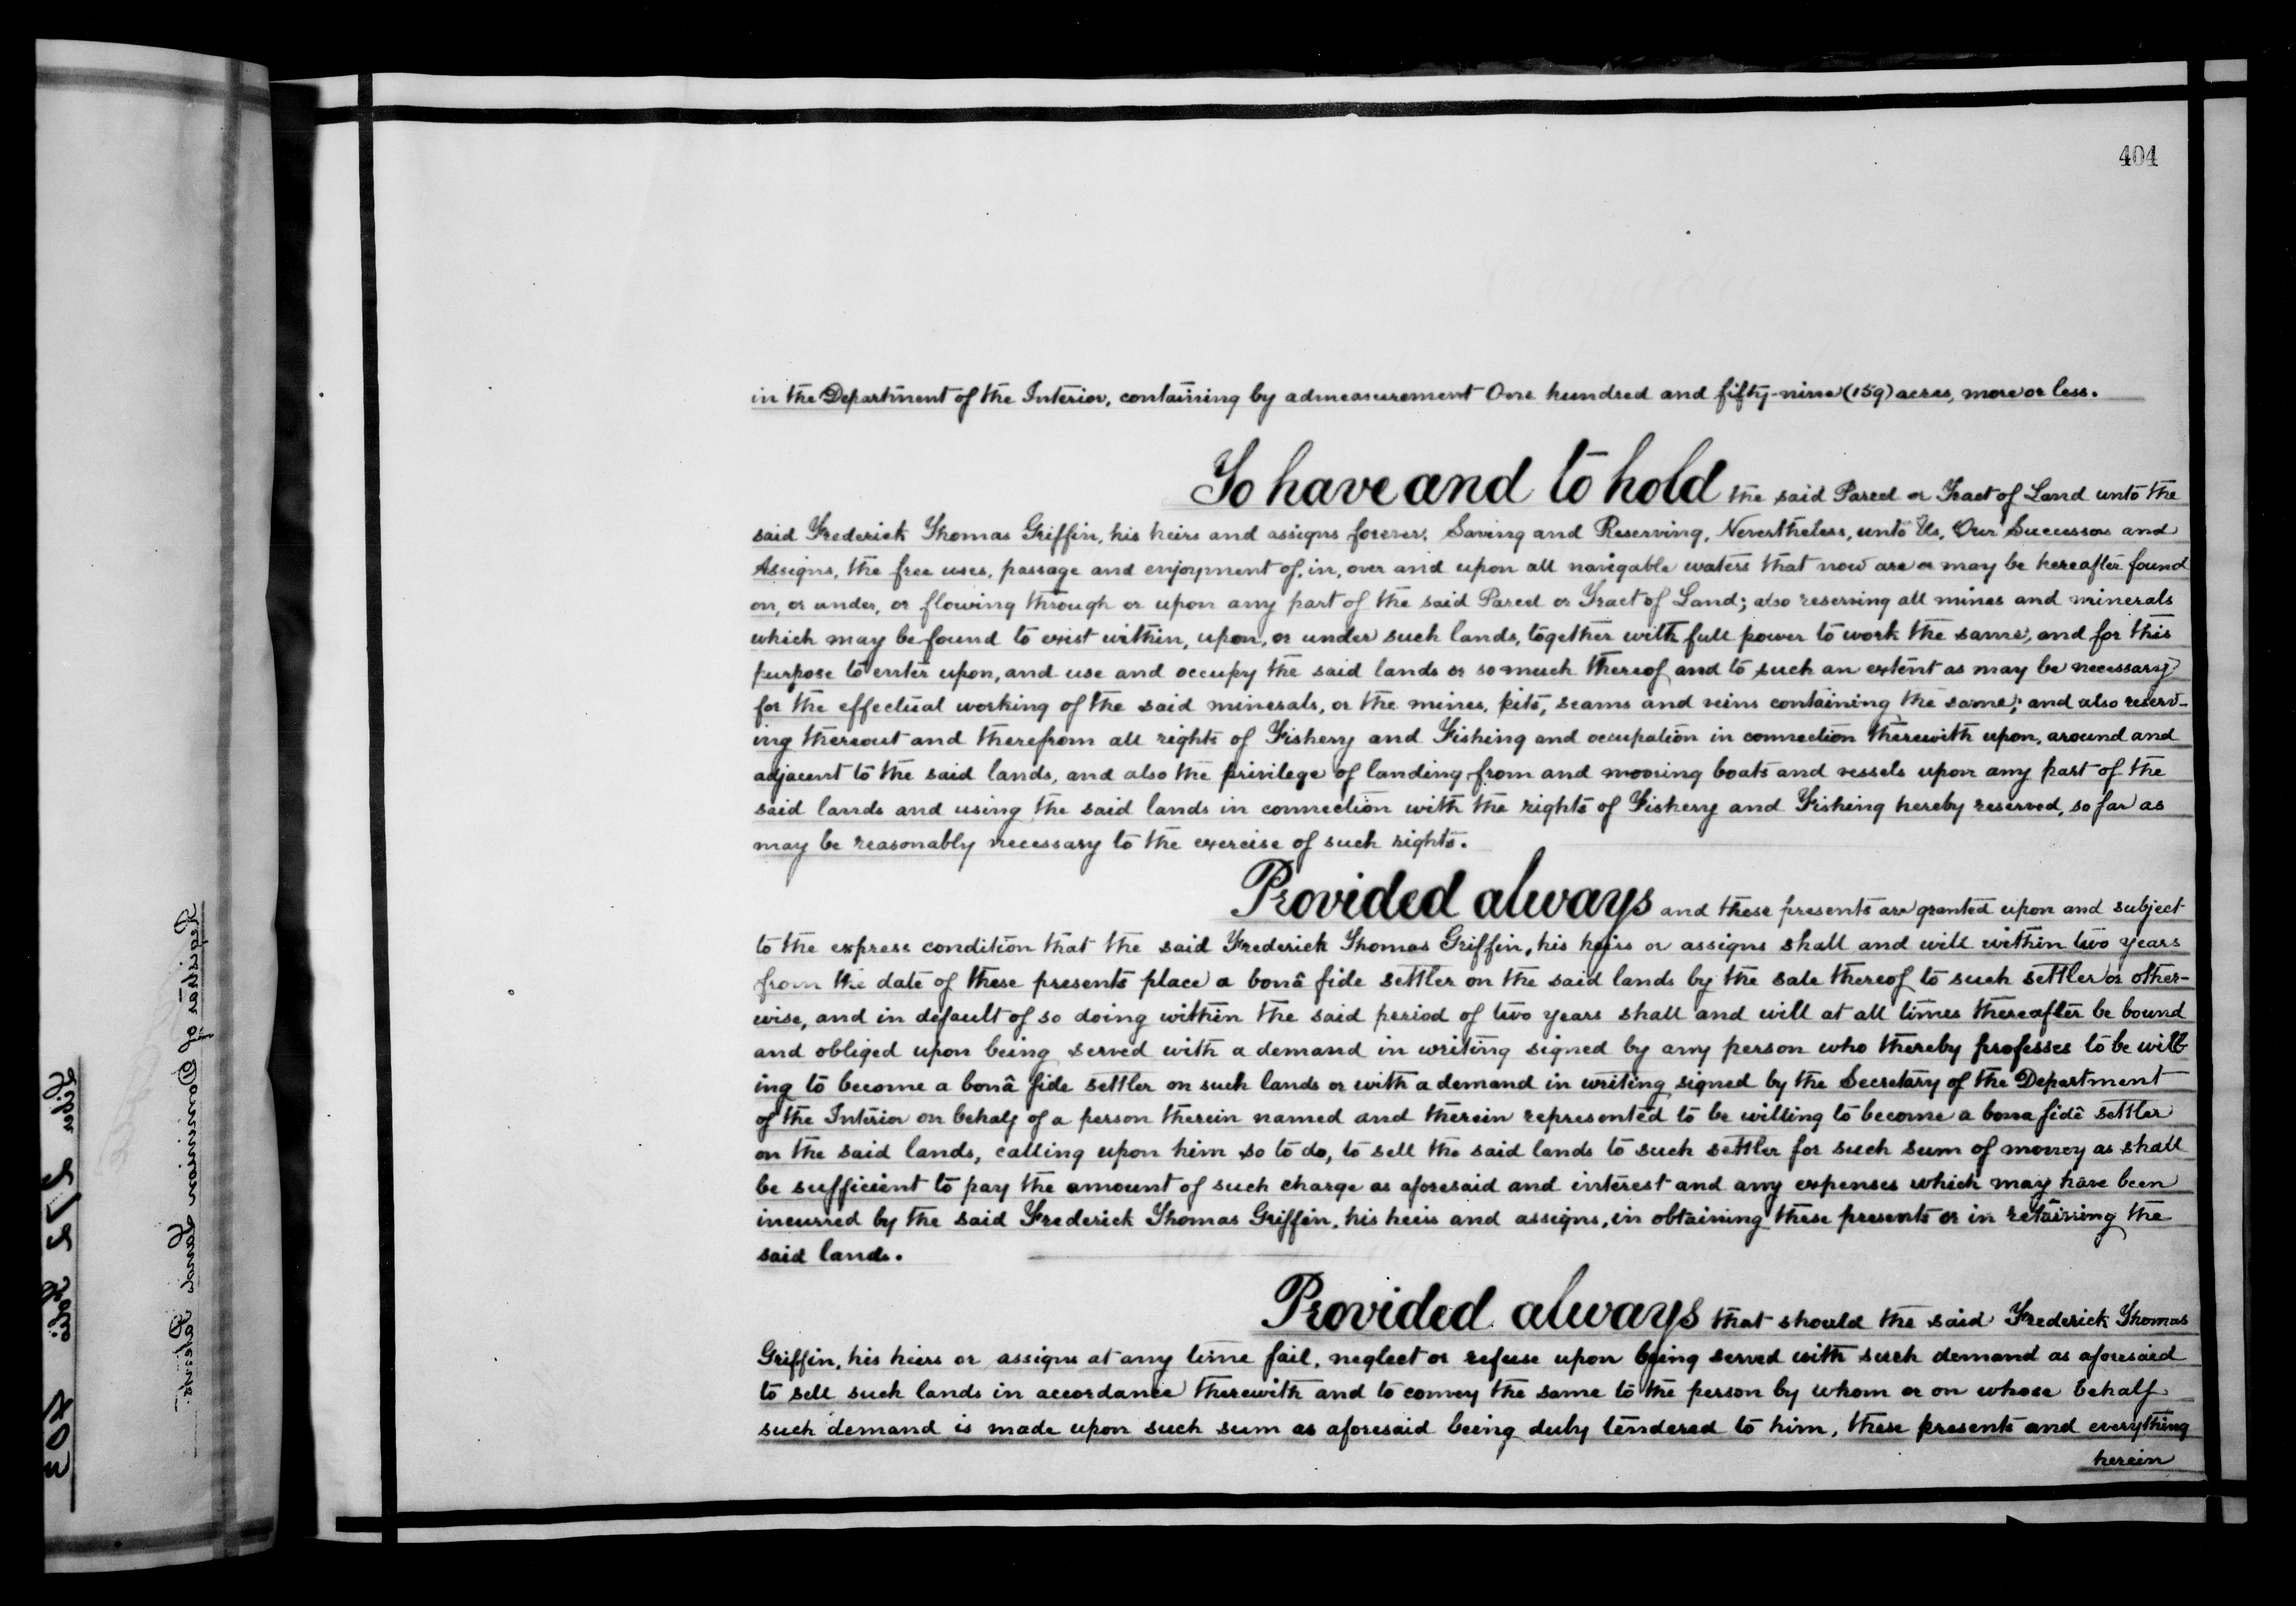 404
in the Department of the Interior, containing by admeasurement One hundred and fifty-nine (159) acres, more or less.
To have and to hold the said Parcel or Tract of Land unto the
said Frederick Thomas Griffin, his heirs and assigns forever. Saving and Reserving, Nevertheless, unto Us, Our Successors and
Assigns, the free uses, passage and enjoyment of, in, over and upon all navigable waters that now are or may be hereafter found
on, or under, or flowing through or upon any part of the said Parcel or Tract of Land; also reserving all mines and minerals
which may be found to exist within, upon, or under such lands, together with full power to work the same, and for this
purpose to enter upon, and use and occupy the said lands or so much thereof and to such an extent as may be necessary
for the effectual working of the said minerals, or the mines, pits, seams and veins containing the same; and also reserv-
ing thereout and therefrom all rights of Fishery and Fishing and occupation in connection therewith upon, around and
adjacent to the said lands, and also the privilege of landing from and mooring boats and vessels upon any part of the
said lands and using the said lands in connection with the rights of Fishery and Fishing hereby reserved, so far as
may be reasonably necessary to the exercise of such rights.
Provided always and these presents are granted upon and subject
to the express condition that the said Frederick Thomas Griffin, his heirs or assigns shall and will within two years
from the date of these presents place a bonâ fide settler on the said lands by the sale thereof to such settler or other-
wise, and in default of so doing within the said period of two years shall and will at all times thereafter be bound
and obliged upon being served with a demand in writing signed by any person who thereby professes to be will-
ing to become a bonâ fide settler on such lands or with a demand in writing signed by the Secretary of the Department
of the Interior on behalf of a person therein named and therein represented to be willing to become a bona fide settler
on the said lands, calling upon him so to do, to sell the said lands to such settler for such sum of money as shall
be sufficient to pay the amount of such charge as aforesaid and interest and any expenses which may have been
incurred by the said Frederick Thomas Griffin, his heirs and assigns, in obtaining these presents or in retaining the
said lands.
Provided always that should the said Frederick Thomas
Griffin, his heirs or assigns at any time fail, neglect or refuse upon being served with such demand as aforesaid
to sell such lands in accordance therewith and to convey the same to the person by whom or on whose behalf
such demand is made upon such sum as aforesaid being duly tendered to him, these presents and everything
herein
Registrar of Dominion Lands Patents.
Liber Folio 403